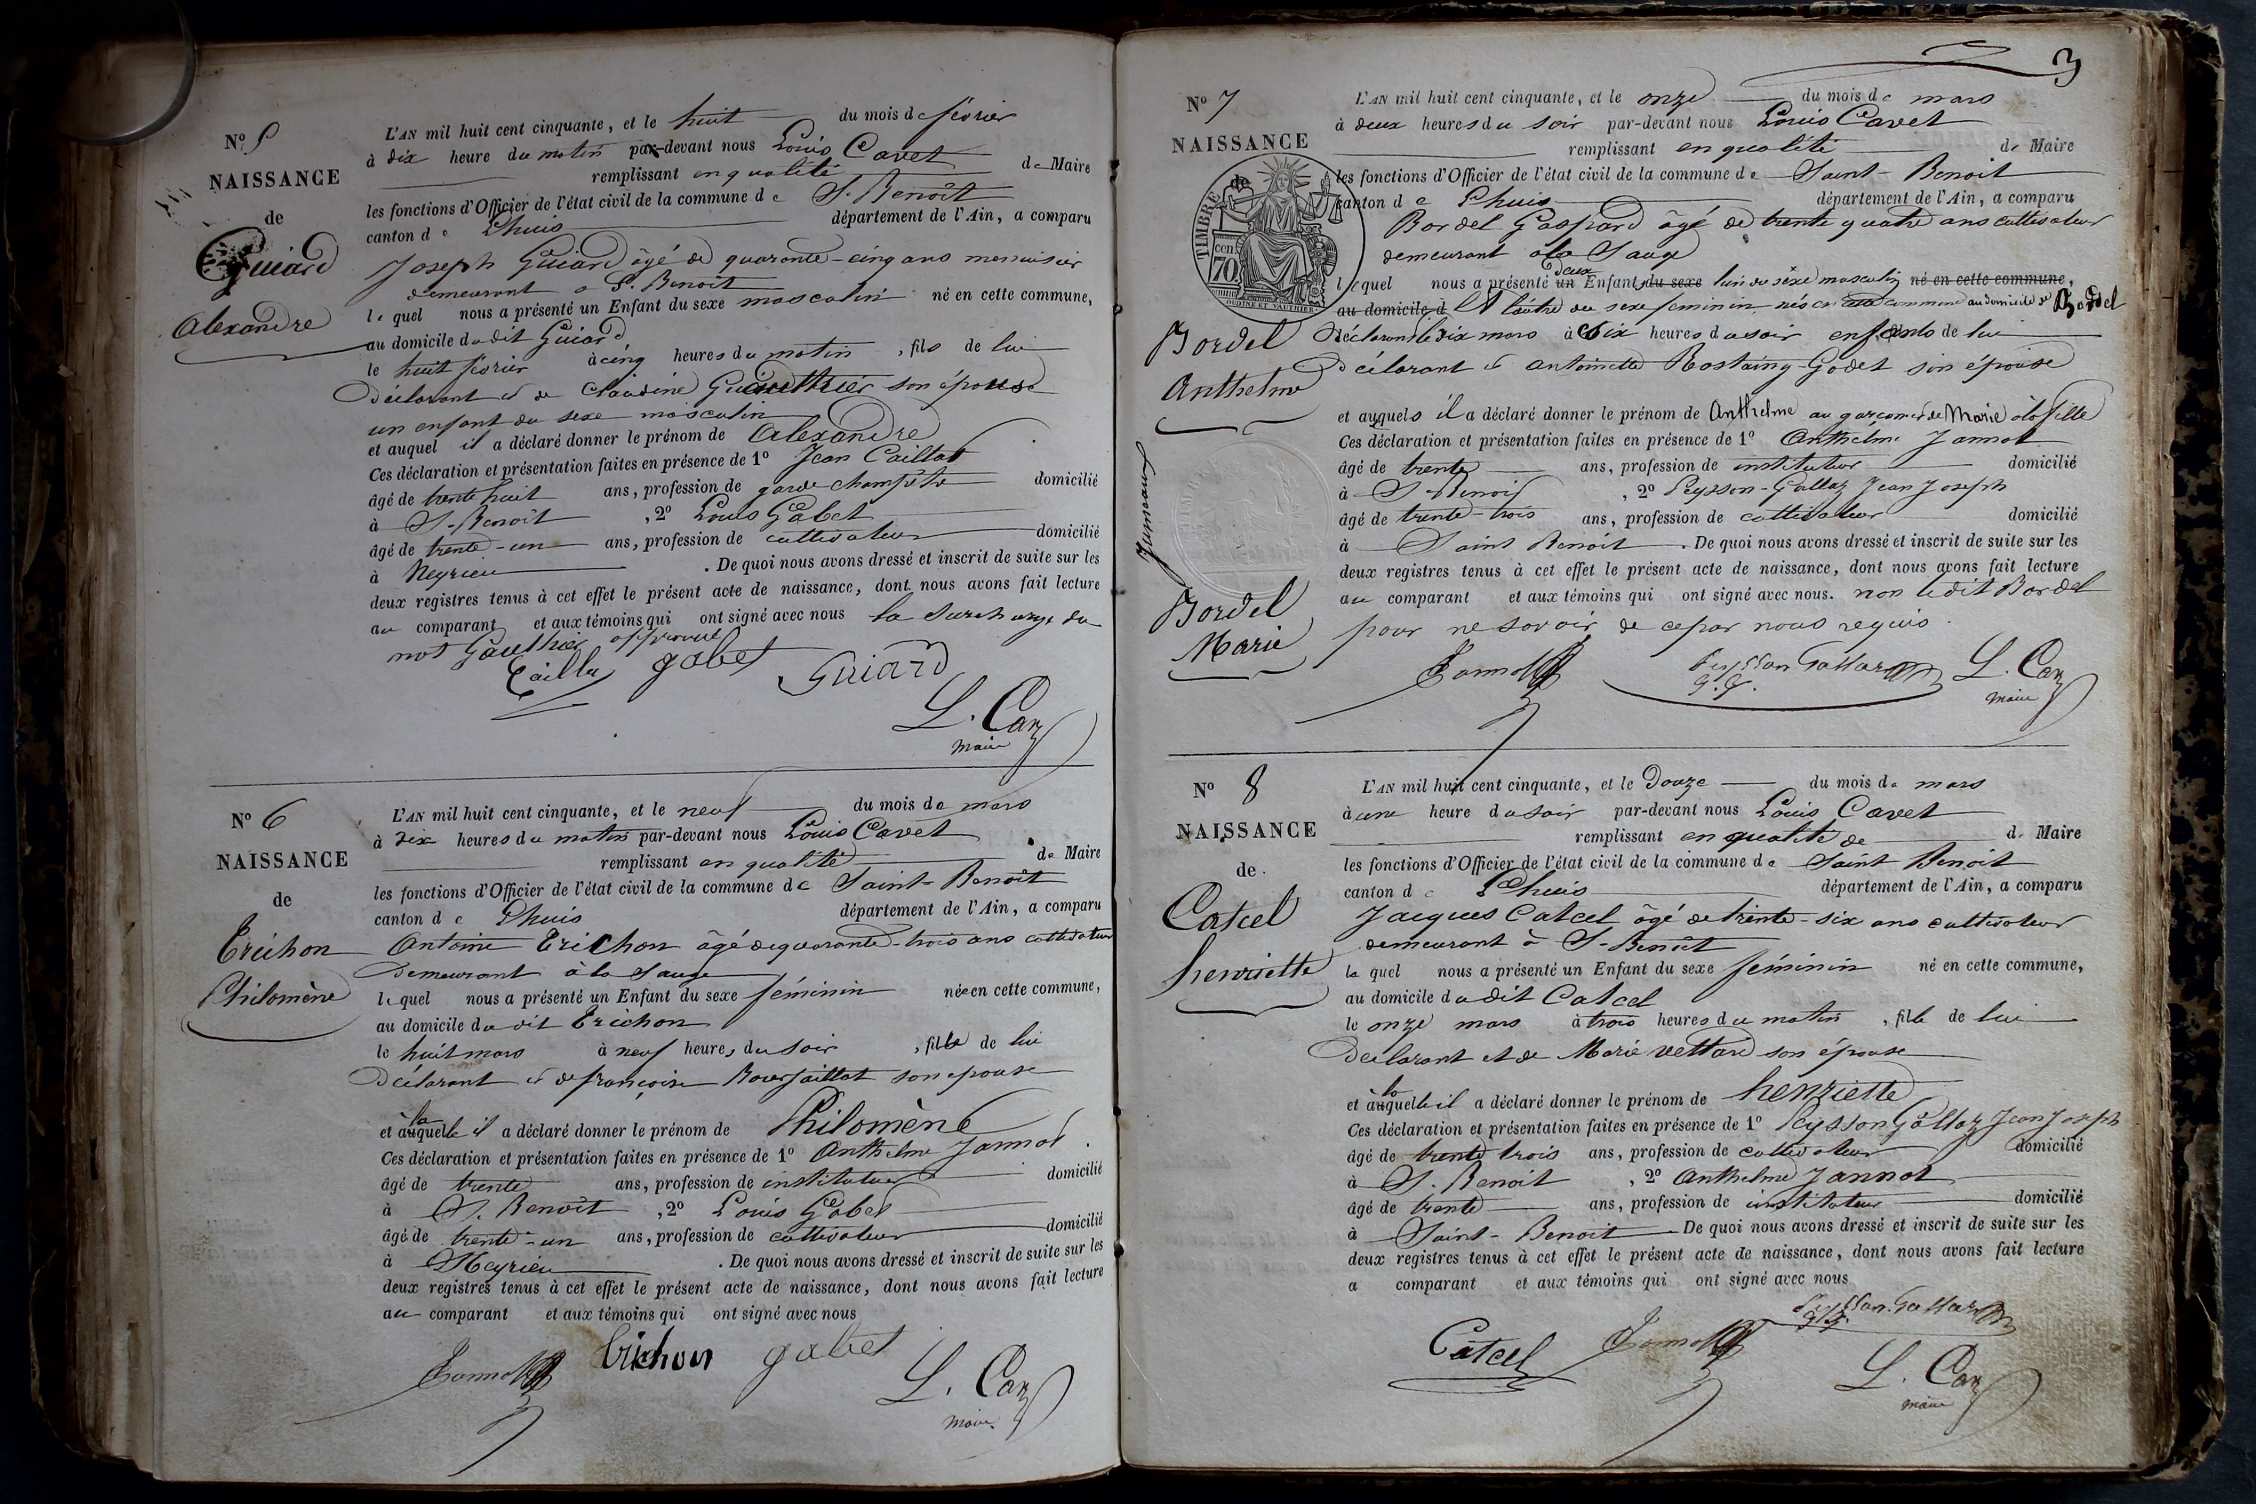 N° 5
NAISSANCE
de
Guiard
Alexandre
L'AN mil huit cent cinquante, et le huit du mois de février
à dix heure du matin par-devant nous Louis Cavet
remplissant en qualité de Maire
les fonctions d'Officier de l'état civil de la commune de St. Benoît
canton de Lhuis département de l'Ain, a comparu
Joseph Guiard âgé de quarante-cinq ans menuisier
demeurant à St. Benoît
lequel nous a présenté un Enfant du sexe masculin né en cette commune,
au domicile dudit Guiard
le huit février à cinq heures du matin, fils de lui
Déclarant et de Claudine Gauthier son épouse
un enfant du sexe masculin
et auquel il a déclaré donner le prénom de Alexandre
Ces déclaration et présentation faites en présence de 1° Jean Caillat
âgé de trente huit ans, profession de garde champêtre domicilié
à St-Benoît, 2° Louis Gabet
âgé de trente-un ans, profession de cultivateur domicilié
à Meyrieu. De quoi nous avons dressé et inscrit de suite sur les
deux registres tenus à cet effet le présent acte de naissance, dont nous avons fait lecture
au comparant et aux témoins qui ont signé avec nous la surcharge du
mot Gauthier approuvé
Cailla gabet Guiard
L. Cav
maire
N° 6
NAISSANCE
de
Trichon
Philomène
L'AN mil huit cent cinquante, et le neuf du mois de mars
à dix heures du matin par-devant nous Louis Cavet
remplissant en qualité de Maire
les fonctions d'Officier de l'état civil de la commune de Saint-Benoît
canton de Lhuis département de l'Ain, a comparu
Antoine Trichon âgé de quarante-trois ans cultivateur
Demeurant à la Sauge
lequel nous a présenté un Enfant du sexe féminin née en cette commune,
au domicile dudit Trichon
le huit mars à neuf heures du soir, fille de lui
Déclarant et de françoise Bourjaillat son épouse
et à laquelle il a déclaré donner le prénom de Philomène
Ces déclaration et présentation faites en présence de 1° Anthelme Jannot
âgé de trente ans, profession de instituteur domicilié
à St. Benoît, 2° Louis Gabet
âgé de trente-un ans, profession de cultivateur domicilié
à Meyrieu. De quoi nous avons dressé et inscrit de suite sur les
deux registres tenus à cet effet le présent acte de naissance, dont nous avons fait lecture
au comparant et aux témoins qui ont signé avec nous
Jannot trichon gabet
L. Cav
maire
3
N° 7
NAISSANCE
de
TIMBRE
cen.
70
Bordel
Anthelme
Jumeaux
Bordel
Marie
L'AN mil huit cent cinquante, et le onze du mois de mars
à deux heures du soir par-devant nous Louis Cavet
remplissant en qualité de Maire
les fonctions d'Officier de l'état civil de la commune de Saint-Benoit
canton de Lhuis département de l'Ain, a comparu
Bordel Gaspard âgé de trente quatre ans cultivateur
demeurant à la Sauge
deux
lequel nous a présenté un Enfants du sexe l'un du sèxe masculin né en cette commune,
au domicile d et l'autre du sexe feminin nés en cette commune au domicile de Bordel
Déclarant le dix mars à six heures du soir enfants de lui
Déclarant et antoinette Rostaing-Godet son épouse
et auxquels il a déclaré donner le prénom de Anthelme au garçon et de Marie à la fille
Ces déclaration et présentation faites en présence de 1° Anthelme Jannot
âgé de trente ans, profession de instituteur domicilié
à St-Benoit, 2° Peysson-Gallaz Jean Joseph
âgé de trente-trois ans, profession de cultivateur domicilié
à Saint Benoit. De quoi nous avons dressé et inscrit de suite sur les
deux registres tenus à cet effet le présent acte de naissance, dont nous avons fait lecture
au comparant et aux témoins qui ont signé avec nous. non le dit Bordel
pour ne savoir de ce par nous requis.
Jannot Peysson Gallaz L. Cav
J. J. maire
N° 8
NAISSANCE
de
Catcel
henriette
L'AN mil huit cent cinquante, et le Douze du mois de mars
à une heure du soir par-devant nous Louis Cavet
remplissant en qualité de de Maire
les fonctions d'Officier de l'état civil de la commune de Saint Benoit
canton de Lhuis département de l'Ain, a comparu
Jacques Catcel âgé de trente-six ans cultivateur
demeurant à St-Benoît
lequel nous a présenté un Enfant du sexe féminin né en cette commune,
au domicile dudit Catcel
le onze mars à trois heures du matin, fille de lui
Déclarant et de Marie vettard son épouse
et à laquelle il a déclaré donner le prénom de henriette
Ces déclaration et présentation faites en présence de 1° Peysson Gallaz Jean Joseph
âgé de trente trois ans, profession de cultivateur domicilié
à St. Benoit, 2° Anthelme Jannot
âgé de trente ans, profession de instituteur domicilié
à Saint-Benoit De quoi nous avons dressé et inscrit de suite sur les
deux registres tenus à cet effet le présent acte de naissance, dont nous avons fait lecture
a comparant et aux témoins qui ont signé avec nous
Peysson Gallaz
Catcel Jannot
L. Cav
maire